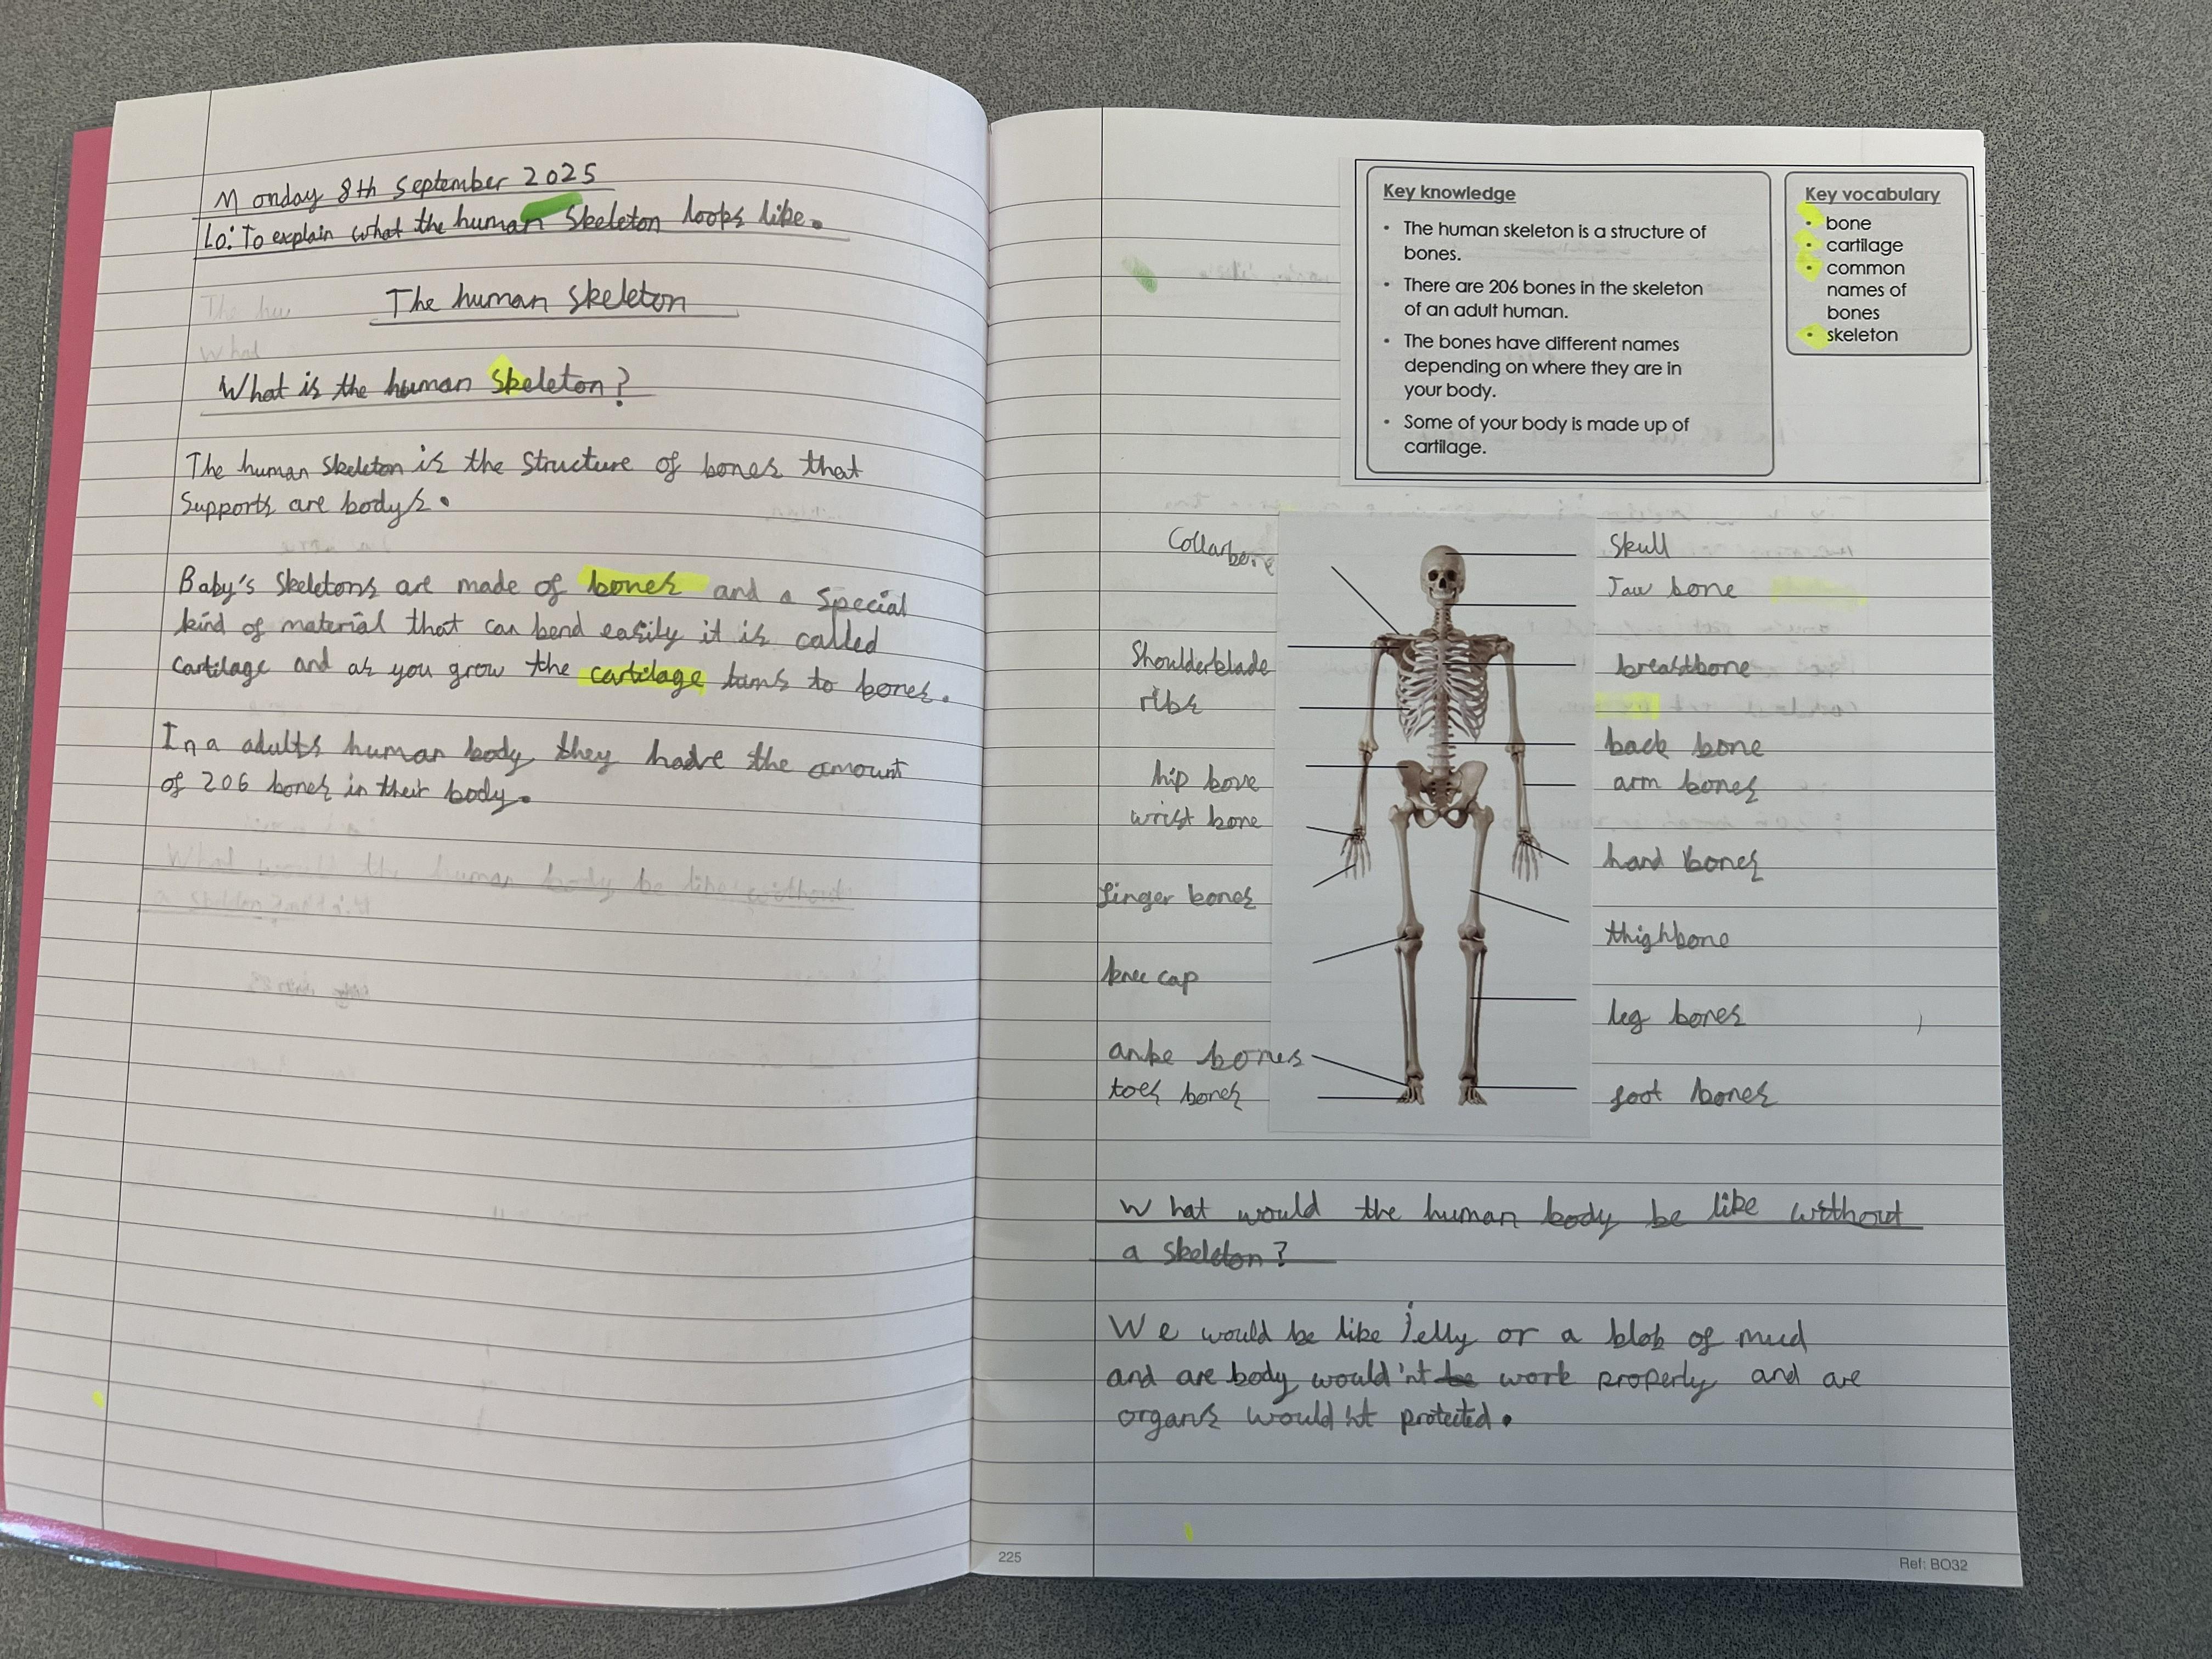 Monday 8th September 2025
Lo: To explain what the human skeleton looks like.
The human skeleton
What is the human skeleton?
The human skeleton is the structure of bones that
supports are body's.
Baby's skeletons are made of bones and a special
kind of material that can bend easily it is called
cartilage and as you grow the cartilage turns to bones.
In a adults human body they have the amount
of 206 bones in their body.
Key knowledge
• The human skeleton is a structure of
bones.
• There are 206 bones in the skeleton
of an adult human.
• The bones have different names
depending on where they are in
your body.
• Some of your body is made up of
cartilage.
Key vocabulary
• bone
• cartilage
• common
names of
bones
• skeleton
Collarbone
Shoulderblade
ribs
hip bone
wrist bone
finger bones
knee cap
anke bones
toes bones
Skull
Jaw bone
breastbone
back bone
arm bones
hand bones
thighbone
leg bones
foot bones
What would the human body be like without
a skeleton?
We would be like jelly or a blob of mud
and are body would'nt be work properly and are
organs would'nt protected.
225
Ref: BO32